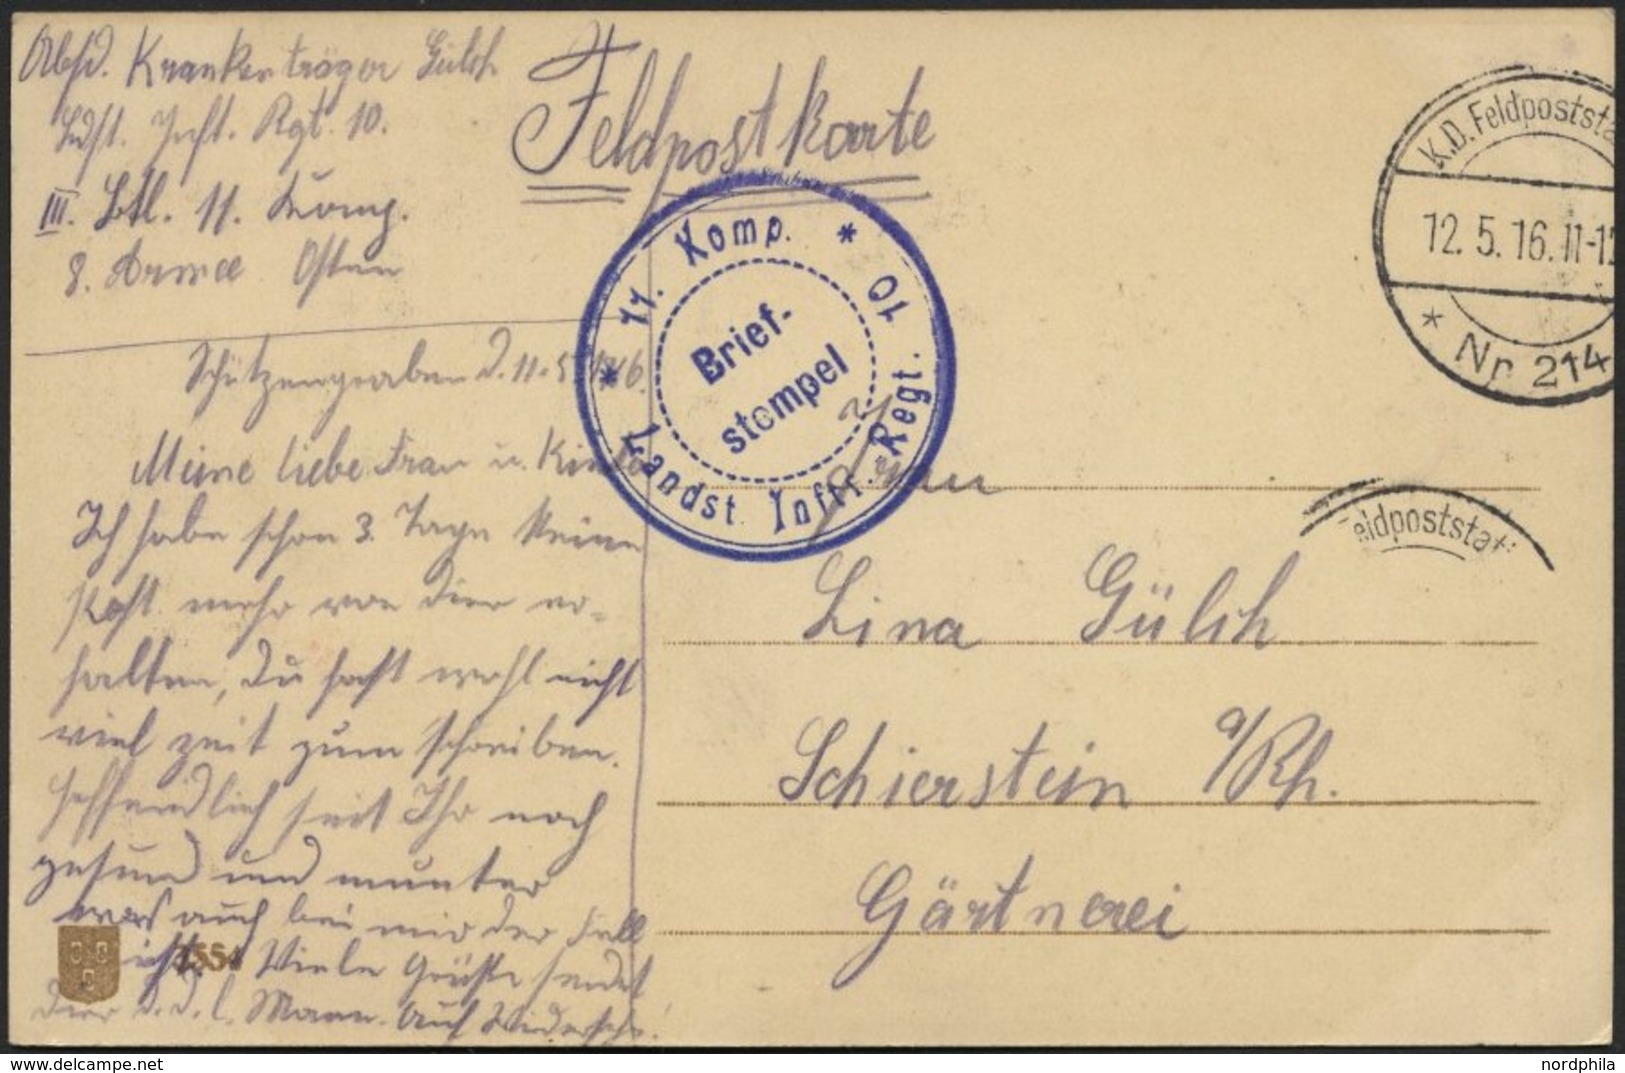 Absd. Krankenträger Gülch
Ldst. Inft. Rgt. 10.
III. Btl. 11. Komp.
8. Armee Osten
Feldpostkarte
Schützengraben d. 11.5.1916.
Meine liebe Frau u. Kinder
Ich habe schon 3. Tage keine
Post mehr von Dier er-
halten, Du hast wohl nicht
viel zeit zum schreiben.
hoffendlich seit Ihr noch
gesund und munter
was auch bei mir der Fall
ist. Viele Grüße sendet
Dier d. l. Mann. Auf Widersehn!
1554
* 11. Komp. * 
Landst. Inftr.-Regt. 10
Brief-
stempel
K.D. Feldpoststa
12.5.16.11-12
* Nr. 214
eldpoststat
Frau
Lina Gülch
Schierstein a/Rh.
Gärtnerei
nordphila.com